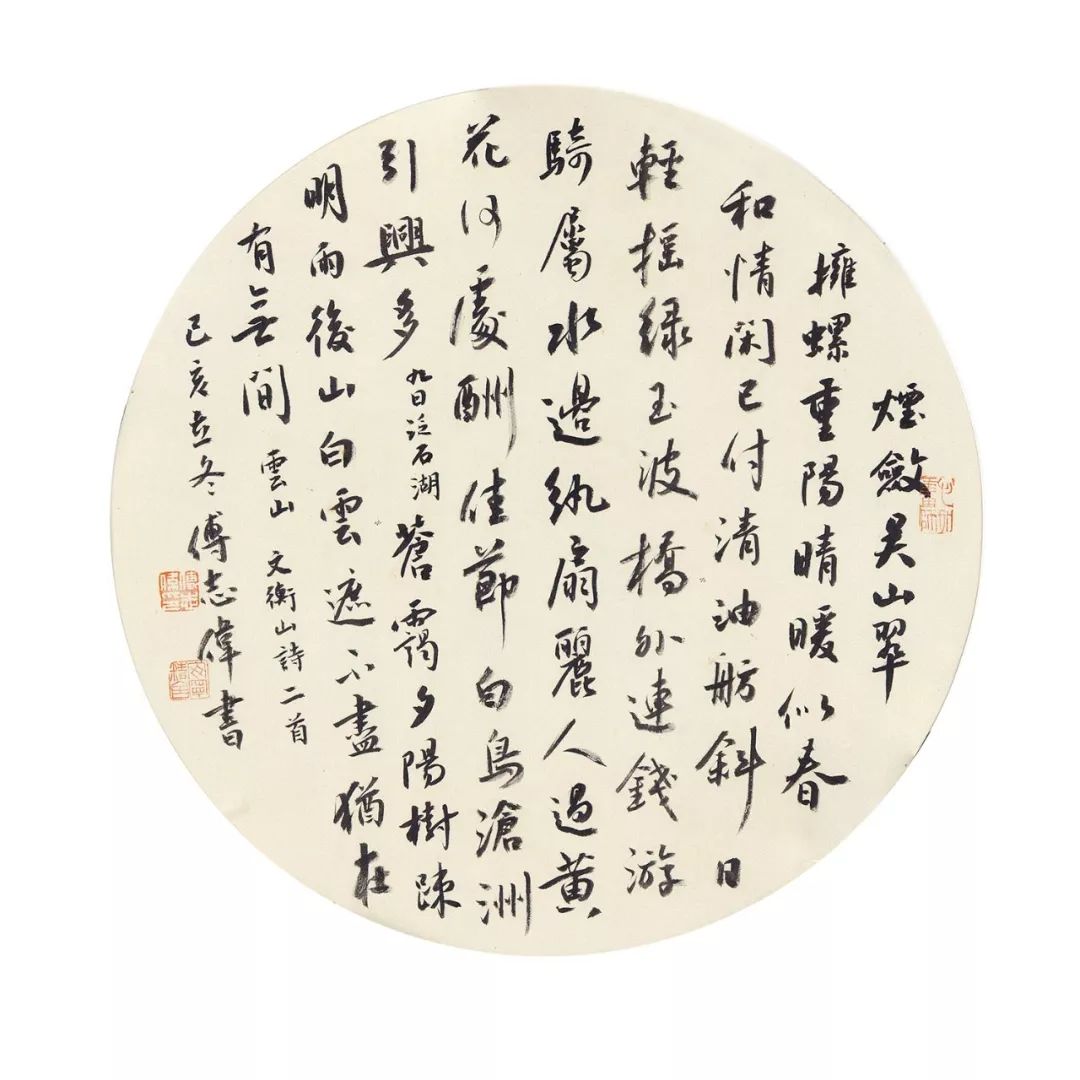 煙斂吴山翠
擁螺重陽晴暖似春
和情閑已付清油舫斜日
輕摇绿玉波橋外連錢游
騎屬水邊紈扇麗人過黄
花何處酬佳節白鳥滄洲
引興多 九日泛石湖 蒼靄夕陽樹疎
明雨後山白雲遮不盡猶在
有無間 雲山 文衡山詩二首
己亥立冬傅志偉書